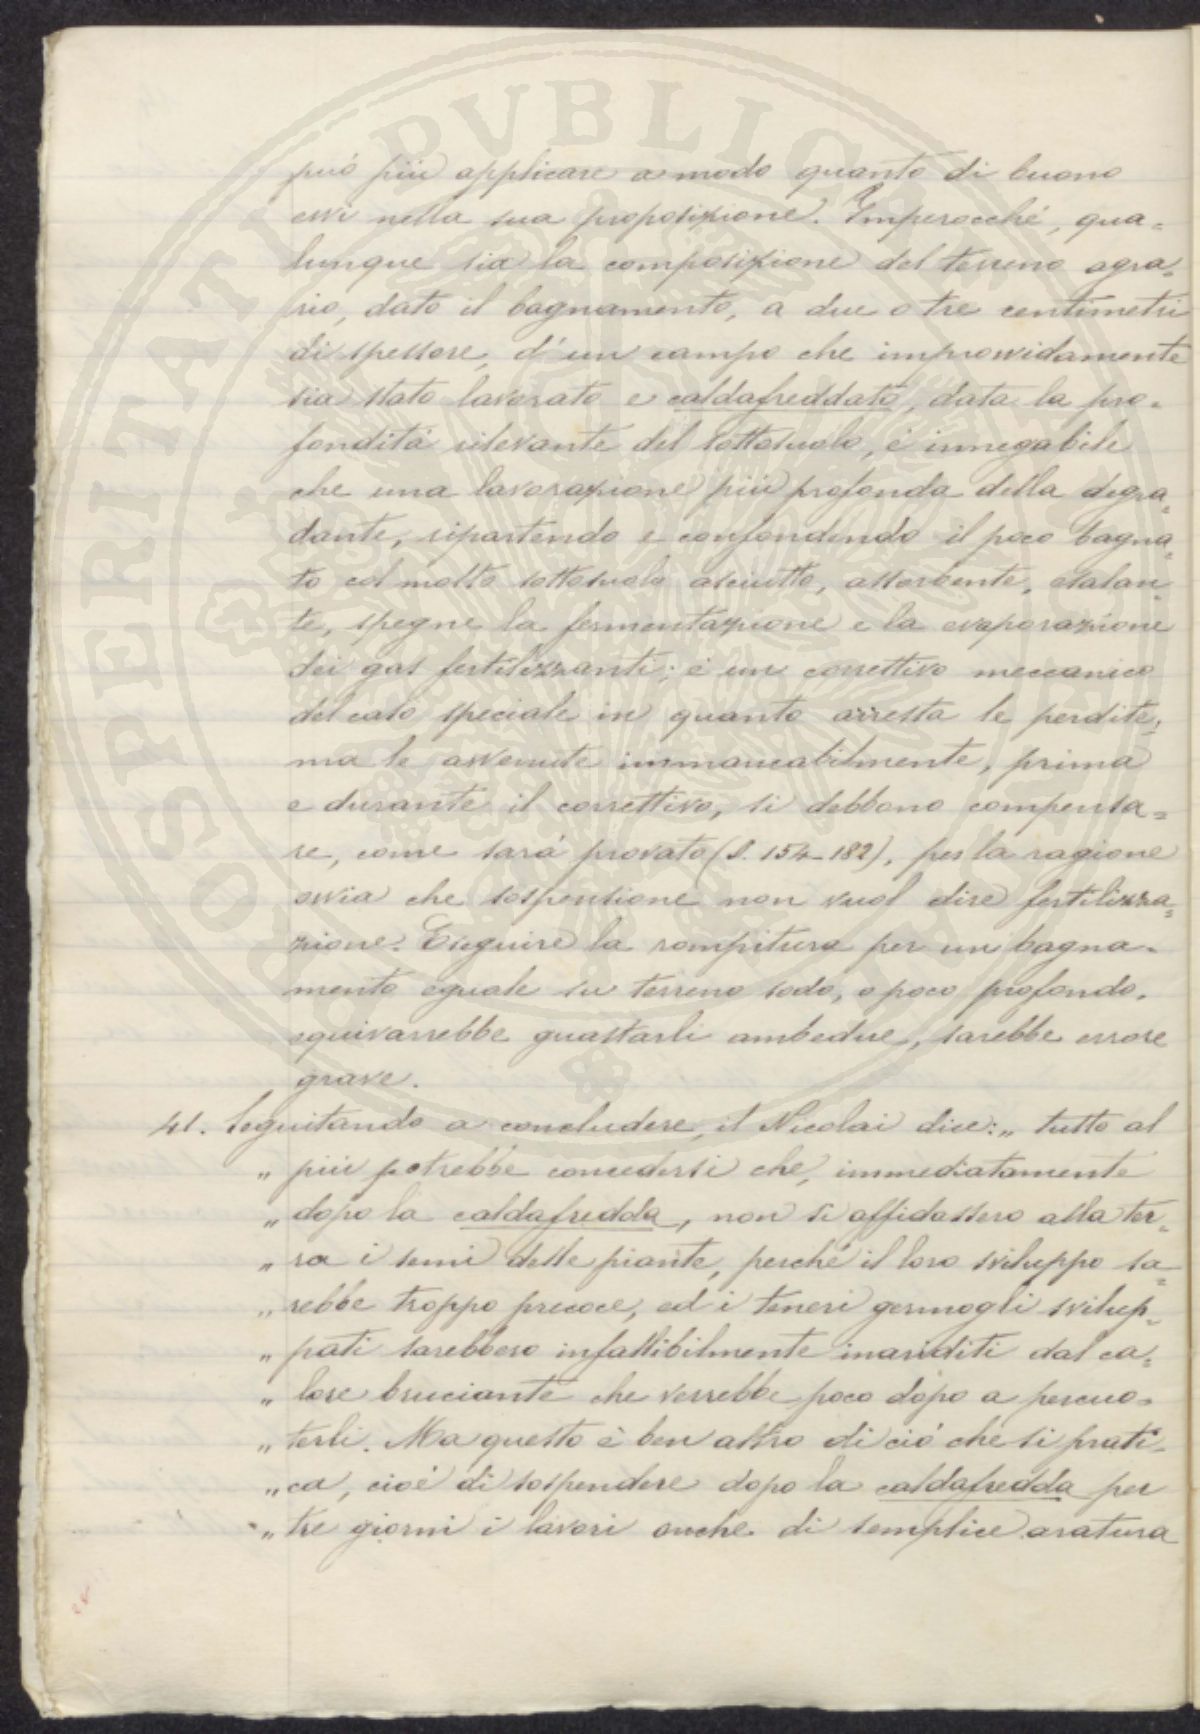 può più applicare a modo quanto di buono
evvi nella sua proposizione. Imperocché, qua=
lunque sia la composizione del terreno agra=
rio, dato il bagnamento, a due o tre centimetri
di spessore, d'un campo che improvvidamente
sia stato lavorato e caldafreddato, data la pro=
fondità rilevante del sottosuolo, è innegabile
che una lavorazione più profonda della degra=
dante, ripartendo e confondendo il poco bagna=
to col molto sottosuolo asciutto, assorbente, esalan=
te, spegne la fermentazione e la evaporazione
dei gas fertilizzanti; è un correttivo meccanico
del caso speciale in quanto arresta le perdite;
ma le avvenute immancabilmente, prima
e durante il correttivo, si debbono compensa=
re, come sarà provato (S. 154-182), per la ragione
ovvia che sospensione non vuol dire fertilizza=
zione. Eseguire la rompitura per un bagna=
mento eguale su terreno sodo, o poco profondo,
equivarrebbe guastarli ambedue, sarebbe errore
grave.
41. Seguitando a concludere, il Nicolai dice: „ tutto al
„ più potrebbe concedersi che, immediatamente
„ dopo la caldafredda, non si affidassero alla ter=
„ ra i semi delle piante, perché il loro sviluppo sa=
„ rebbe troppo precoce, ed i teneri germogli svilup=
„ pati sarebbero infallibilmente inariditi dal ca=
„ lore bruciante che verrebbe poco dopo a percuo=
„ terli. Ma questo è ben altro di ciò che si prati=
„ ca, cioè di sospendere dopo la caldafredda per
„ tre giorni i lavori anche di semplice aratura
PROSPERITATI PVBLICAE